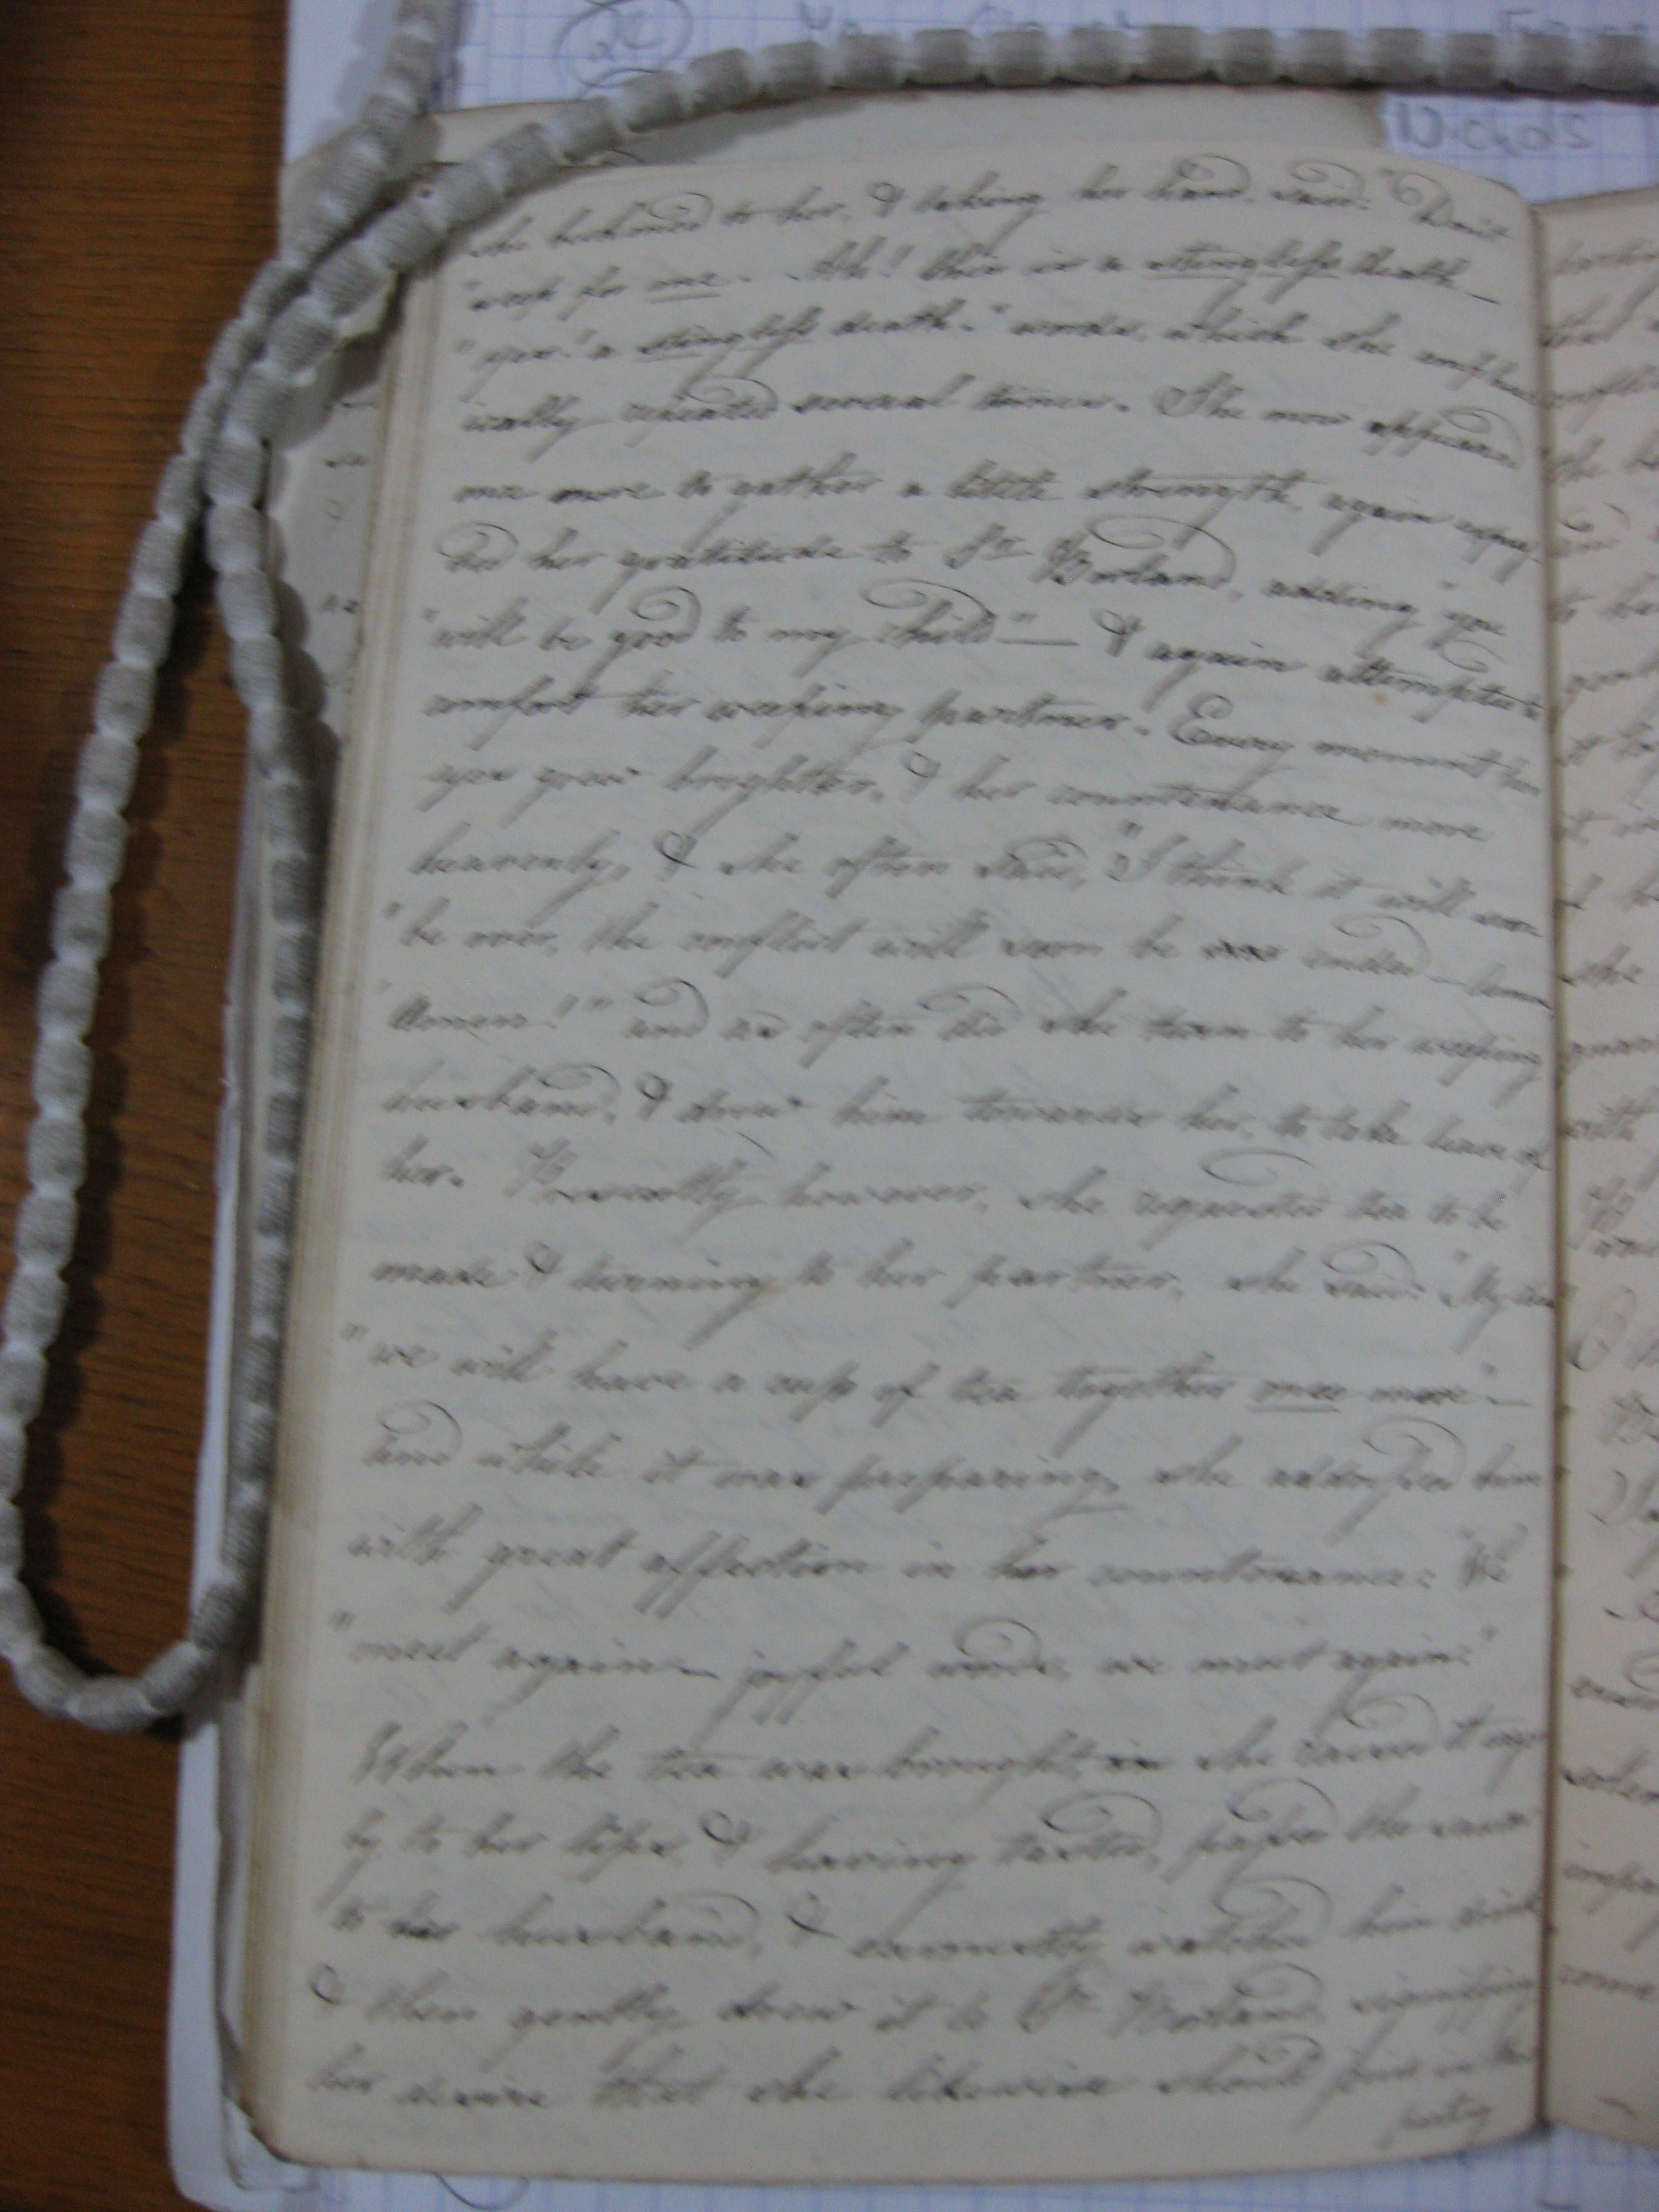 she beckoned to her, & taking her hand, said: "Don't
"weep for me. Ah! this is a stingless death_
"yes! a stingless death." words, which she emphat
ically repeated several times. She now appeared
once more to gather a little strength, again expres-
sed her gratitude to Sr Borland, adding "you
"will be good to my child"— & again attempted to
comfort her weeping partner. Every moment her
eyes grew brighter, & her countenance more
heavenly, & she often said, "I think it will soon
"be over, the conflict will soon be ended—
"Amen!" and as often did she turn to her weeping
husband, & drew him towards her, to take leave of
her. Presently however, she requested tea to be
made & turning to her partner, she said: "My
"we will have a cup of tea together once more"—
and while it was preparing, she addressed him
with great affection in her countenance: "We
"meet again— joyful words, we meet again:"
When the tea was brought in she raised it
ly to her lips, & having tasted, passed the same
to her husband, & earnestly watched him drink
& then gently drew it to Sr Borland, signifying
her desire that she likewise should join in this
parting
Nichols